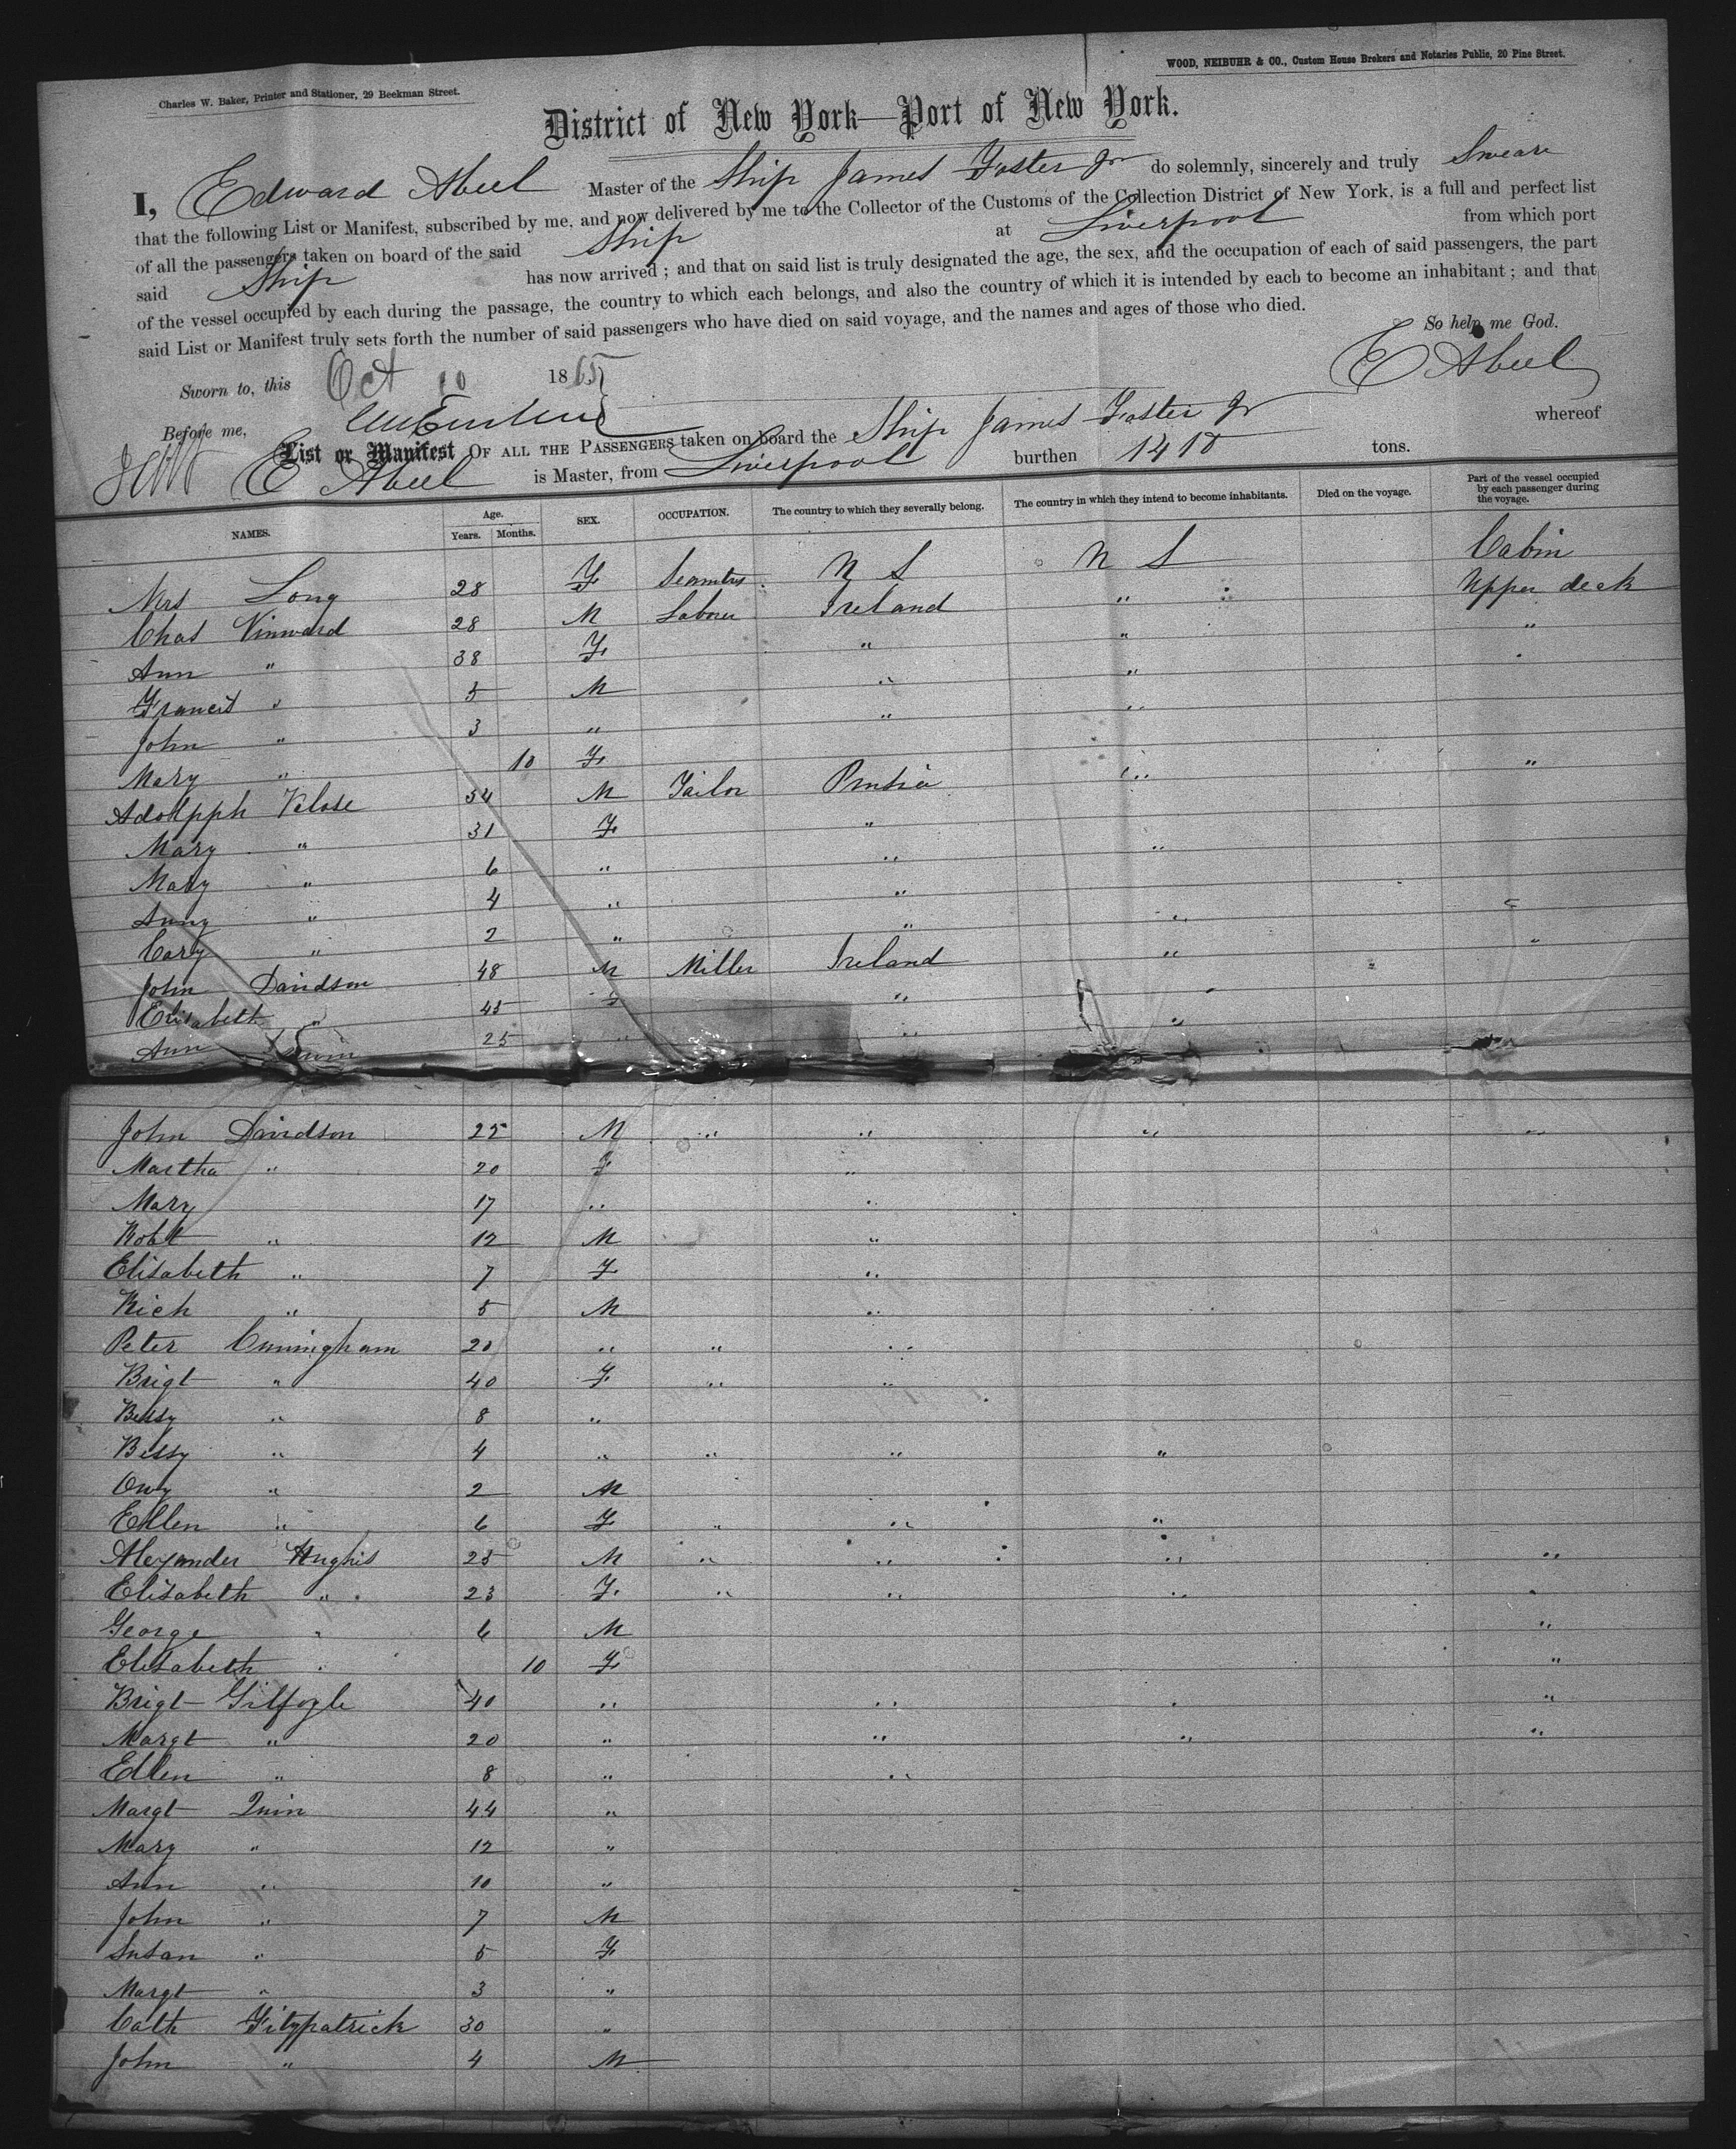 Charles W. Baker, Printer and Stationer, 29 Beekman Street.
WOOD, NEIBUHR & CO., Custom House Brokers and Notaries Public, 20 Pine Street.
District of New York—Port of New York.
I, Edward Abeel Master of the Ship James Foster Jr do solemnly, sincerely and truly Swear
that the following List or Manifest, subscribed by me, and now delivered by me to the Collector of the Customs of the Collection District of New York, is a full and perfect list
of all the passengers taken on board of the said Ship at Liverpool from which port
said Ship has now arrived; and that on said list is truly designated the age, the sex, and the occupation of each of said passengers, the part
of the vessel occupied by each during the passage, the country to which each belongs, and also the country of which it is intended by each to become an inhabitant; and that
said List or Manifest truly sets forth the number of said passengers who have died on said voyage, and the names and ages of those who died.
So help me God.
Sworn to, this Oct 10 1865 E Abeel
Before me,
List or Manifest OF ALL THE PASSENGERS taken on board the Ship James Foster Jr whereof
E Abeel is Master, from Liverpool burthen 1410 tons.
NAMES. Age. Years. Months. SEX. OCCUPATION. The country to which they severally belong. The country in which they intend to become inhabitants. Died on the voyage. Part of the vessel occupied by each passenger during the voyage.
Mrs Long 28 F U S U S Cabin
Chas Vinward 28 M Labourer Ireland " Upper deck
Ann " 38 F " " "
Francis " 5 M " "
John " 3 " " "
Mary " 10 F
Adolpph Velose 34 M Tailor Prusia " "
Mary " 31 F "
Mary " 6 " " "
Anny " 4 " "
Cary " 2 " " "
John Davidson 48 M Miller Ireland " "
Elisabeth " 45 F "
Ann 25 " " "
John Davidson 25 M " " " "
Martha " 20 F "
Mary 17 " "
Robt " 12 M "
Elisabeth " 7 F "
Rich " 5 M "
Peter Cunningham 20 " " "
Brigt " 40 F " "
Betsy " 8 "
Bessy " 4 " " " "
Owy " 2 M
Ellen " 6 F " " "
Alexander Hughis 25 M " " " "
Elisabeth " 23 F " " " "
George " 6 M "
Elisabeth " 10 F "
Brigt Gilfoyle 40 " " " "
Margt " 20 " " " "
Ellen " 8 " "
Margt Quin 44 "
Mary " 12 "
Ann " 10 "
John " 7 M
Susan " 5 F
Margt " 3 "
Cath Fitzpatrick 30 "
John " 4 M